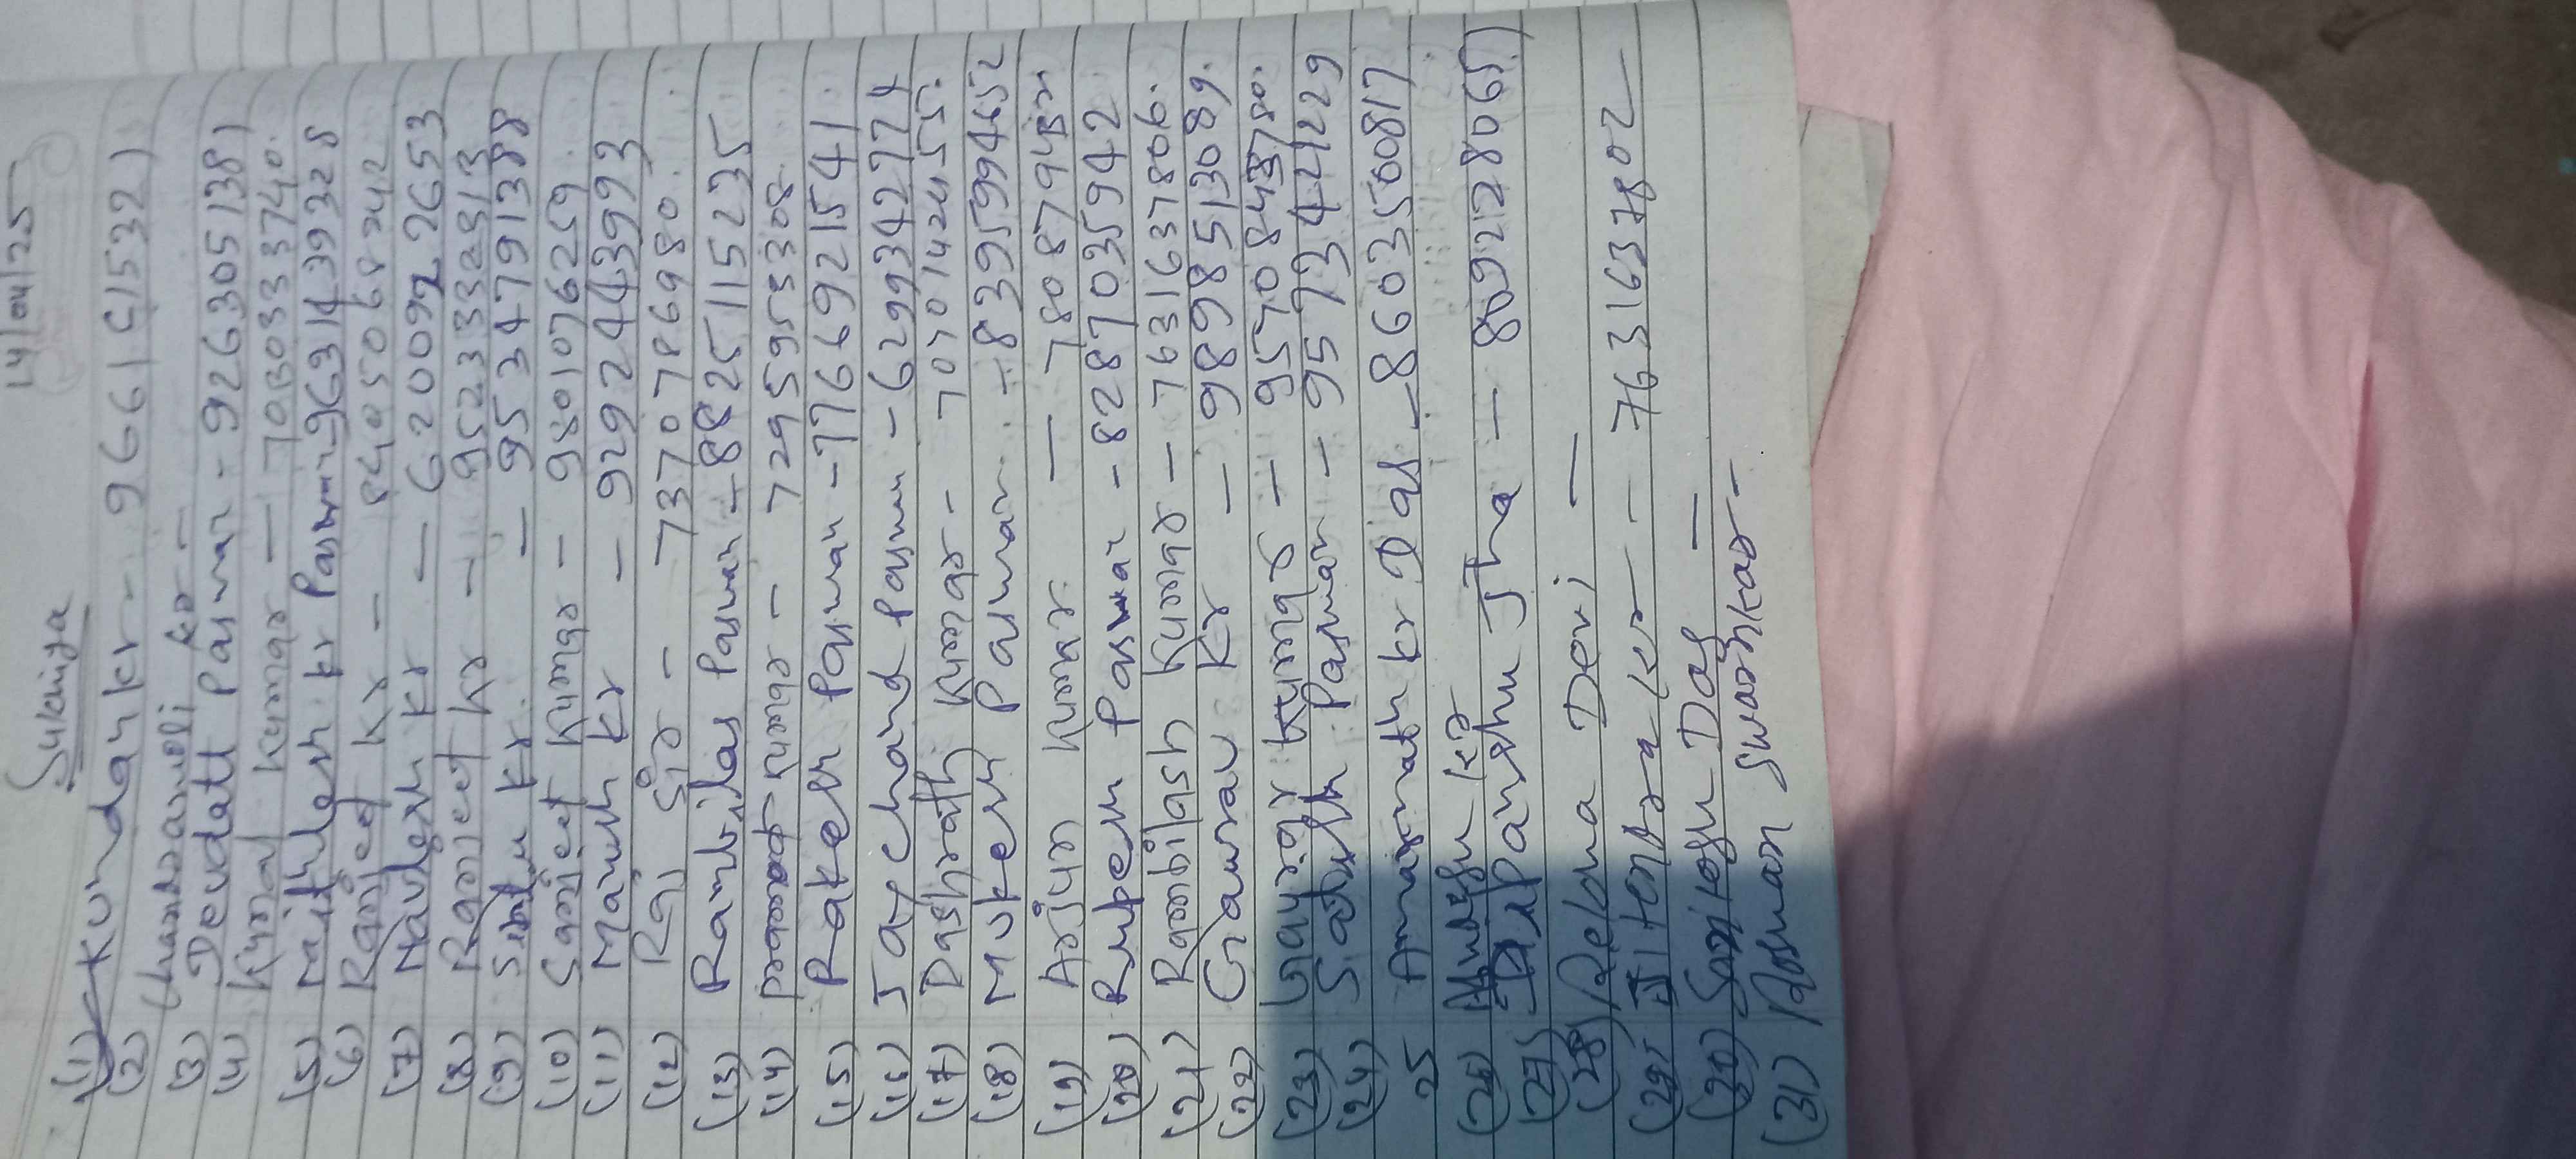 14/04/25
Sukhiya
(1) Kundan kr - 9661C15321
(2) kr -
(3) Devdatt Paswan - 9263051381
(4) Kunal Kumar - 70
(5) Mithlesh kr Paswan - 9631439328
(6) Ranjeet Kr - 8405068242
(7) Navlesh Kr - 6200922653
(8) Ranjeet Kr - 9523332813
(9) Sintu Kr. - 9534791388
(10) Sanjeet Kumar - 9801076259.
(11) Manish Kr - 9292443993
(12) Raj Sir - 7370786980.
(13) Rambilas Paswan - 8825115235
(14) pramod kumar - 7295953308.
(15) Rakesh Paswan - 7766921541
(16) Jay chand Paswan - 6299342774
(17) Dashrath Kumar - 7070142455.
(18) Mukesh Paswan - 8395994652
(19) Arjun Kumar - 780879
(20) Rupesh Paswan - 8287035942
(21) Rambilash Kumar - 7631637806.
(22) Gaurav Kr - 9898513089.
(23) Kumar - 9570843780.
(24) Satish Paswan - 9573424229
25 Amarnath kr Das - 8603500817
(26) kr
(27) Dipanshu Jha - 8092128065
(28) Rekha Devi -
(29) Jitendra kr - 7631637802
(30) Das -
(31) Roshan swarnkar -